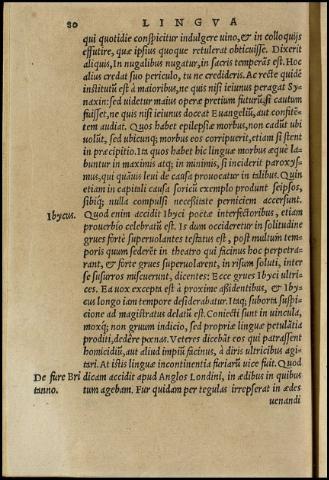 80 LINGVA
qui quotidie conspicitur indulgere uino, & in colloquijs
effutire, quæ ipsius quoque retulerat obticuisse. Dixerit
aliquis, In nugalibus nugatur, in sacris temperãs est. Hoc
alius credat suo periculo, tu ne credideris. Ac recte quidẽ
institutũ est à maioribus, ne quis nisi ieiunus peragat Sy-
naxin: sed uidetur maius operæ pretium futurũ, si cautum
fuisset, ne quis nisi ieiunus doceat Euangeliũ, aut confitẽ-
tem audiat. Quos habet epilepsiæ morbus, non cadũt ubi
uolũt, sed ubicunq; morbus eos corripuerit, etiam si stent
in præcipitio. Ita quos habet hic linguæ morbus æque la-
buntur in maximis atq; in minimis, si inciderit paroxys-
mus, qui quãuis leui de causa prouocatur in talibus. Quin
etiam in capitali causa soricũ exemplo produnt seipsos,
sibiq; nulla compulsi necessitate perniciem accersunt.
Ibycus. Quod enim accidit Ibyci poetæ interfectoribus, etiam
prouerbio celebratũ est. Is dum occideretur in solitudine
grues forte superuolantes testatus est, post multum tem-
poris quum sederẽt in theatro qui facinus hoc perpetra-
rant, & forte grues superuolarent, in risum soluti, inter
se susurros miscuerunt, dicentes: Ecce grues Ibyci ultri-
ces. Ea uox excepta est à proxime aßidentibus, & Iby-
cus longo iam tempore desiderabatur. Itaq; suborta suspi-
cione ad magistratus delatũ est. Coniecti sunt in uincula,
moxq; non gruum indicio, sed propriæ linguæ petulãtia
proditi, dedêre pœnas. Veteres dicebãt eos qui patrassent
homicidiũ, aut aliud impiũ facinus, à diris ultricibus agi-
tari. At istis linguæ incontinentia furiarũ uice fuit. Quod
De fure Bri dicam accidit apud Anglos Londini, in ædibus in quibus
tanno. tum agebam. Fur quidam per tegulas irrepserat in ædes
uenandi